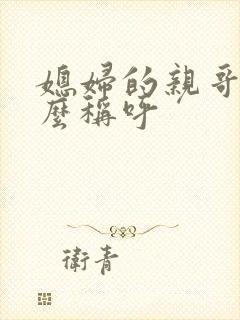 媳婦的親哥
麼稱呼
衛青